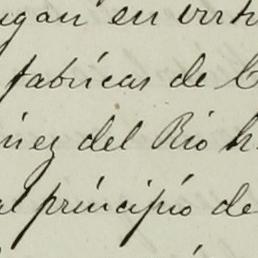 ugan en virtu
fabricas de C
nez del Rio h
al principio de